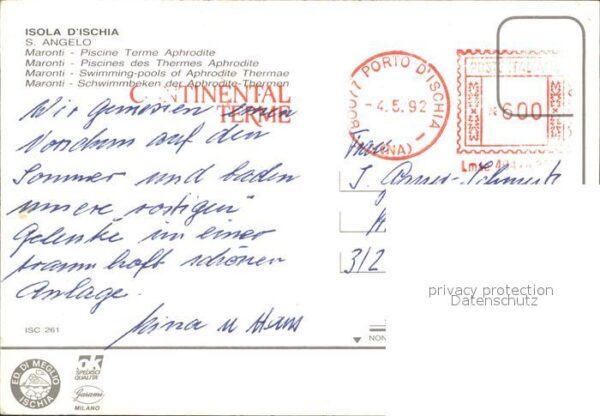 ISOLA D'ISCHIA
S. ANGELO
Maronti - Piscine Terme Aphrodite
Maronti - Piscines des Thermes Aphrodite
Maronti - Swimming-pools of Aphrodite Thermae
Maronti - Schwimmbeken der Aphrodite-Thermen
CONTINENTAL
TERME
80077 PORTO D'ISCHIA
- 4.5.92
(NA)
600
Wir geniessen einen
Vorschuss auf den
Sommer und baden
unsere "rostigen"
Gelenke in einer
traumhaft schönen
Anlage.
Nina u Hans
Frau
312
privacy protection
Datenschutz
ISC 261
NON
ED. DI MEGLIO
ISCHIA
SPEDISCI
QUALITÀ
Garami
MILANO